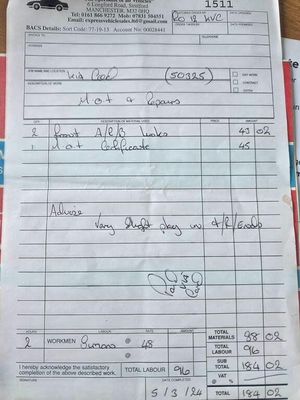 6 Longford Road, Stretford
MANCHESTER. M32 0HQ
Tel: 0161 866 9272 Mob: 07831 504511
BACS Details: Sort Code: 77-19-13 Account No: 00028441
1511
INVOICE TO
TELEPHONE
ADDRESS
JOB NAME/LOCATION
Kia Ceed (50325)
DAY WORK
CONTRACT
EXTRA
M.O.T & Repairs
QTY DESCRIPTION OF MATERIAL USED PRICE AMOUNT
2 Front A/R/B Links 43 02
1 M.O.T Certificate 45
Advise
Very Slight play in T/R/Ends
Paid
Visa
Card
HOURS LABOUR RATE AMOUNT
2 WORKMEN @ 48
@
TOTAL MATERIALS 88 02
TOTAL LABOUR 96
I hereby acknowledge the satisfactory completion of the above described work.
TOTAL LABOUR 96
SUB TOTAL 184 02
SIGNATURE DATE COMPLETED
VAT %
5/3/24 TOTAL 184 02